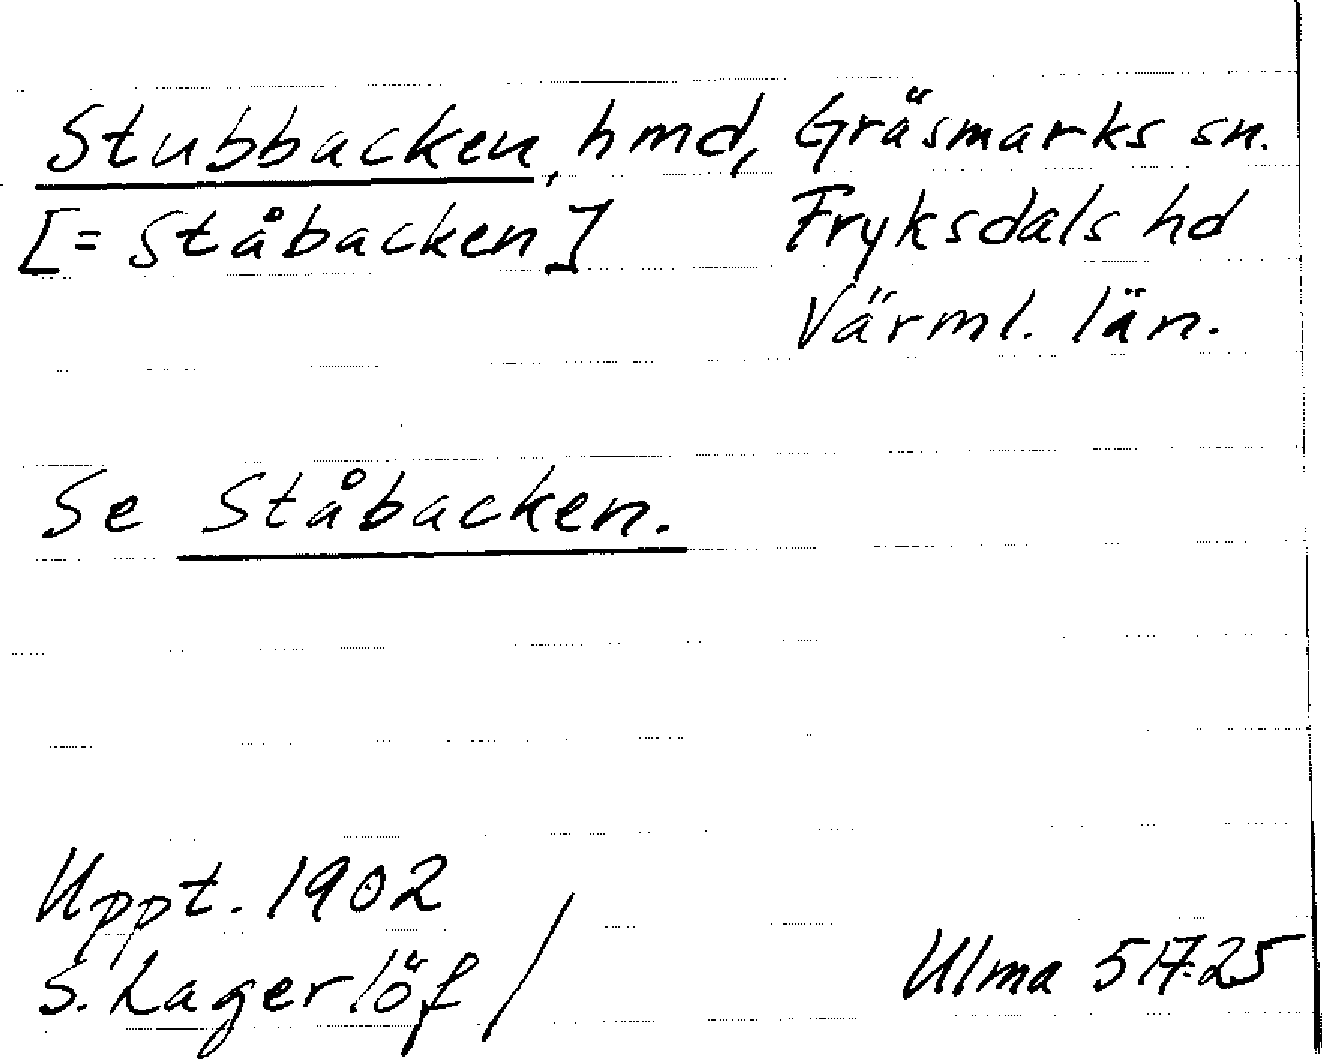 Stubbacken, hmd, Gräsmarks sn.
[= Ståbacken] Fryksdals hd
Värml. län.
Se Ståbacken.
Uppt. 1902
S. Lagerlöf / Ulma